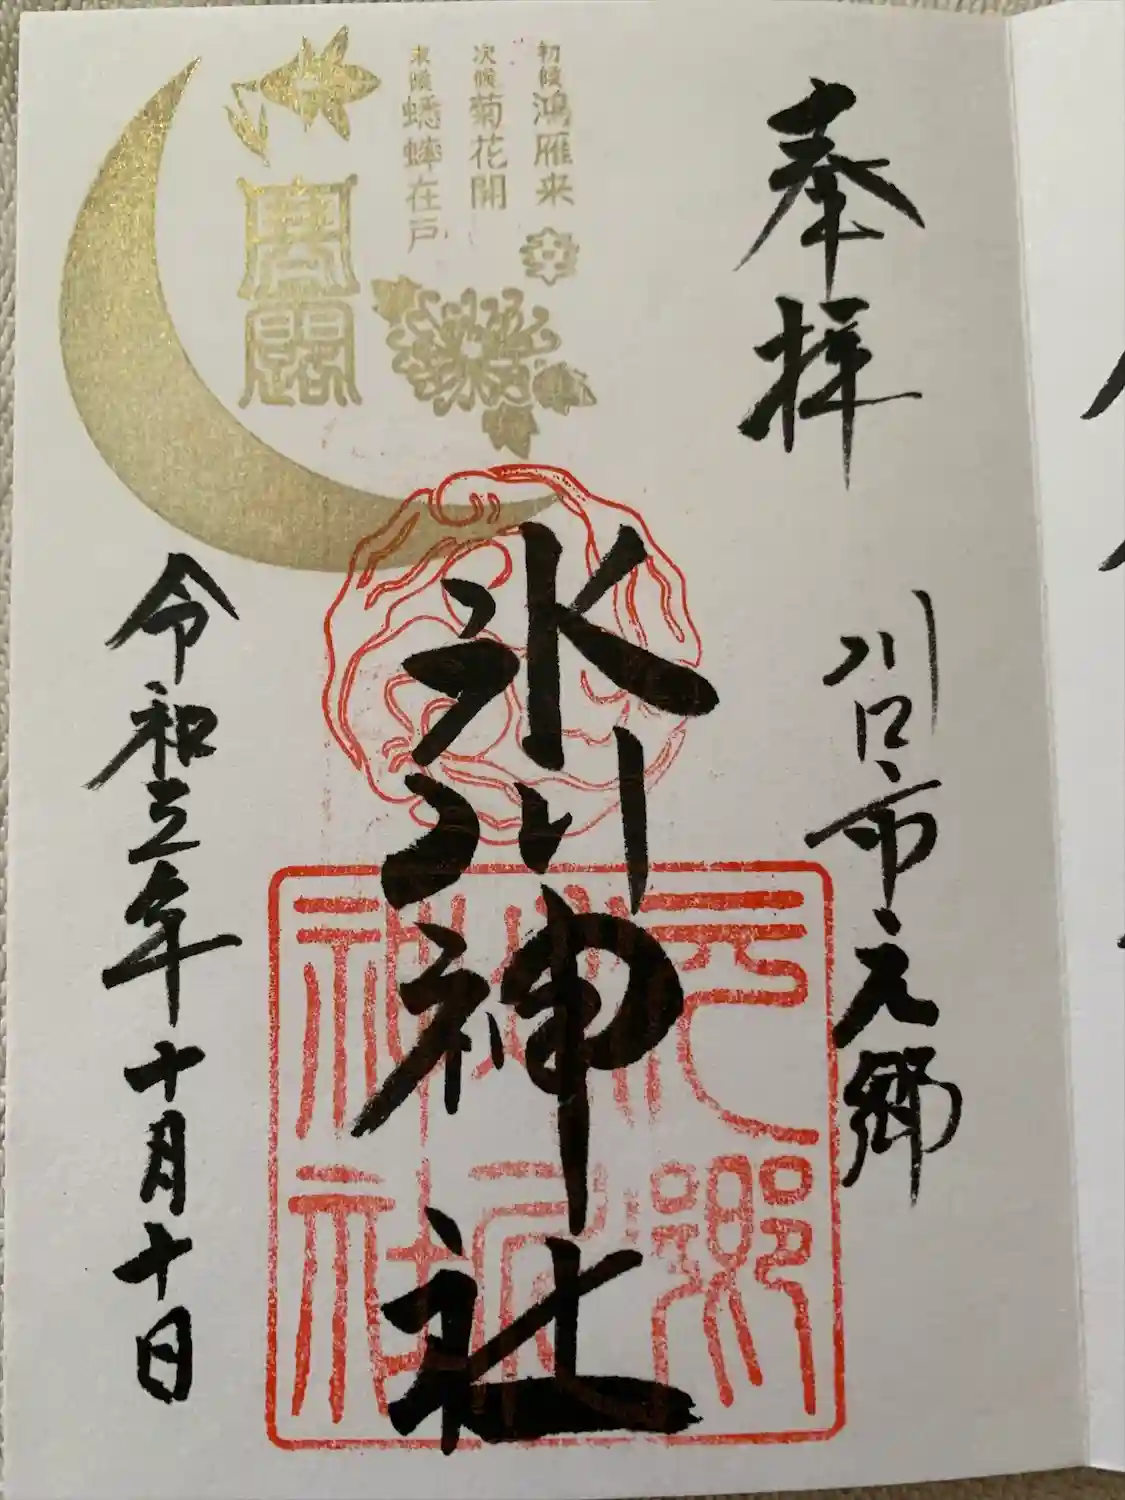 奉拝
川口市元郷
初候 鴻雁来
次候 菊花開
末候 蟋蟀在戸
寒露
氷川神社
元郷
神社
令和五年十月十日